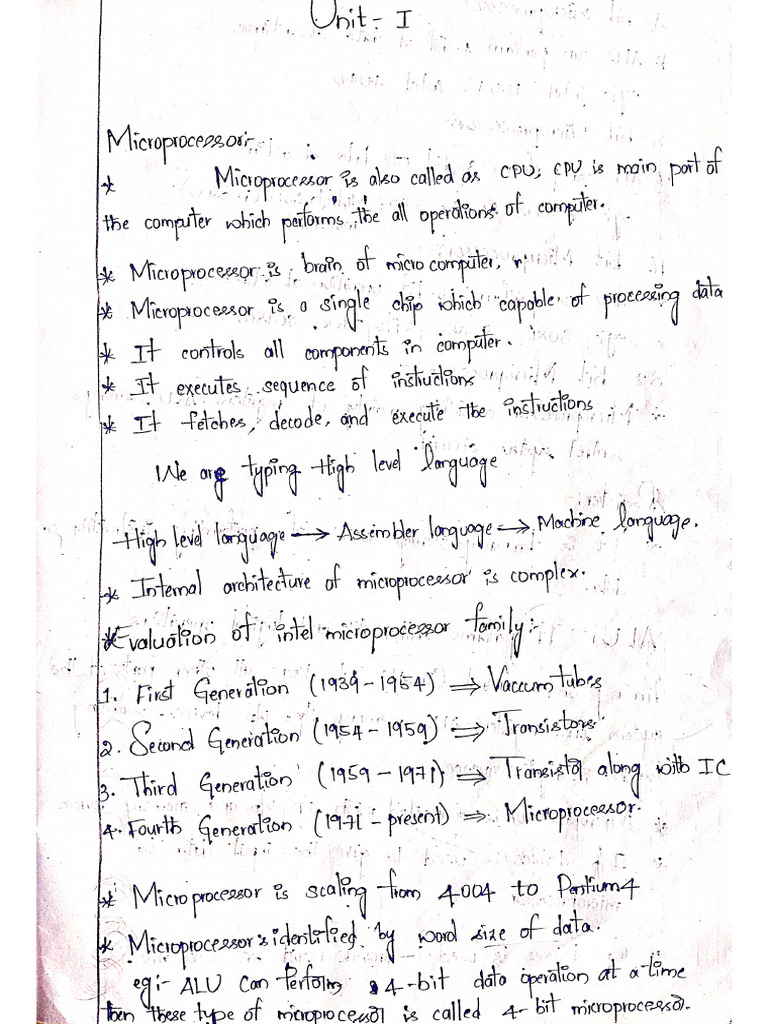 Unit - I
Microprocessor:-
* Microprocessor is also called as CPU; CPU is main part of
the computer which performs the all operations of computer.
* Microprocessor is brain of micro computer,
* Microprocessor is a single chip which capable of processing data
* It controls all components in computer.
* It executes sequence of instructions
* It fetches, decode, and execute the instructions
We are typing High level language
High level language → Assembler language → Machine language.
* Internal architecture of microprocessor is complex.
* Evaluation of intel microprocessor family:-
1. First Generation (1939 - 1954) ⇒ Vaccum tubes
2. Second Generation (1954 - 1959) ⇒ Transistors
3. Third Generation (1959 - 1971) ⇒ Transistor along with IC
4. Fourth Generation (1971 - present) ⇒ Microprocessor.
* Microprocessor is scaling from 4004 to Pentium4
* Microprocessor is identified by word size of data.
eg:- ALU can perform 4-bit data operation at a time
then these type of microprocessor is called 4-bit microprocessor.